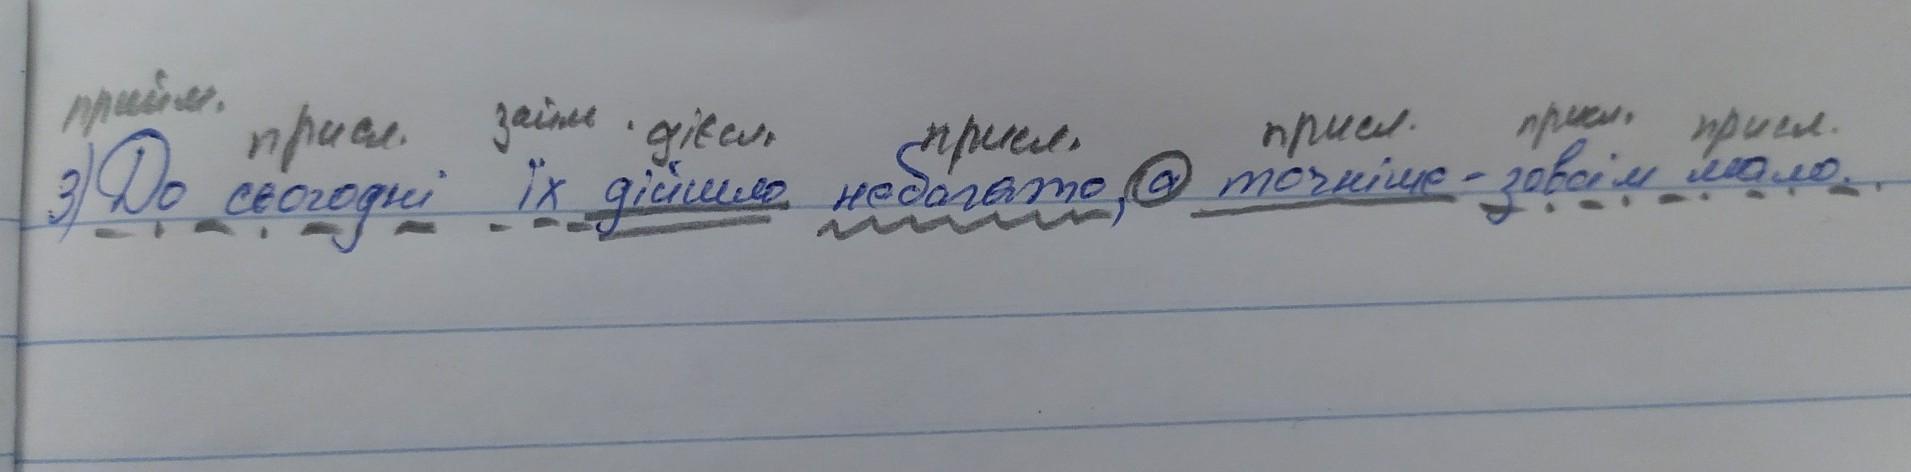 прийм. присл. займ. дієсл. присл. присл. присл. присл.
3) До сьогодні їх дійшло небагато, а точніше - зовсім мало.